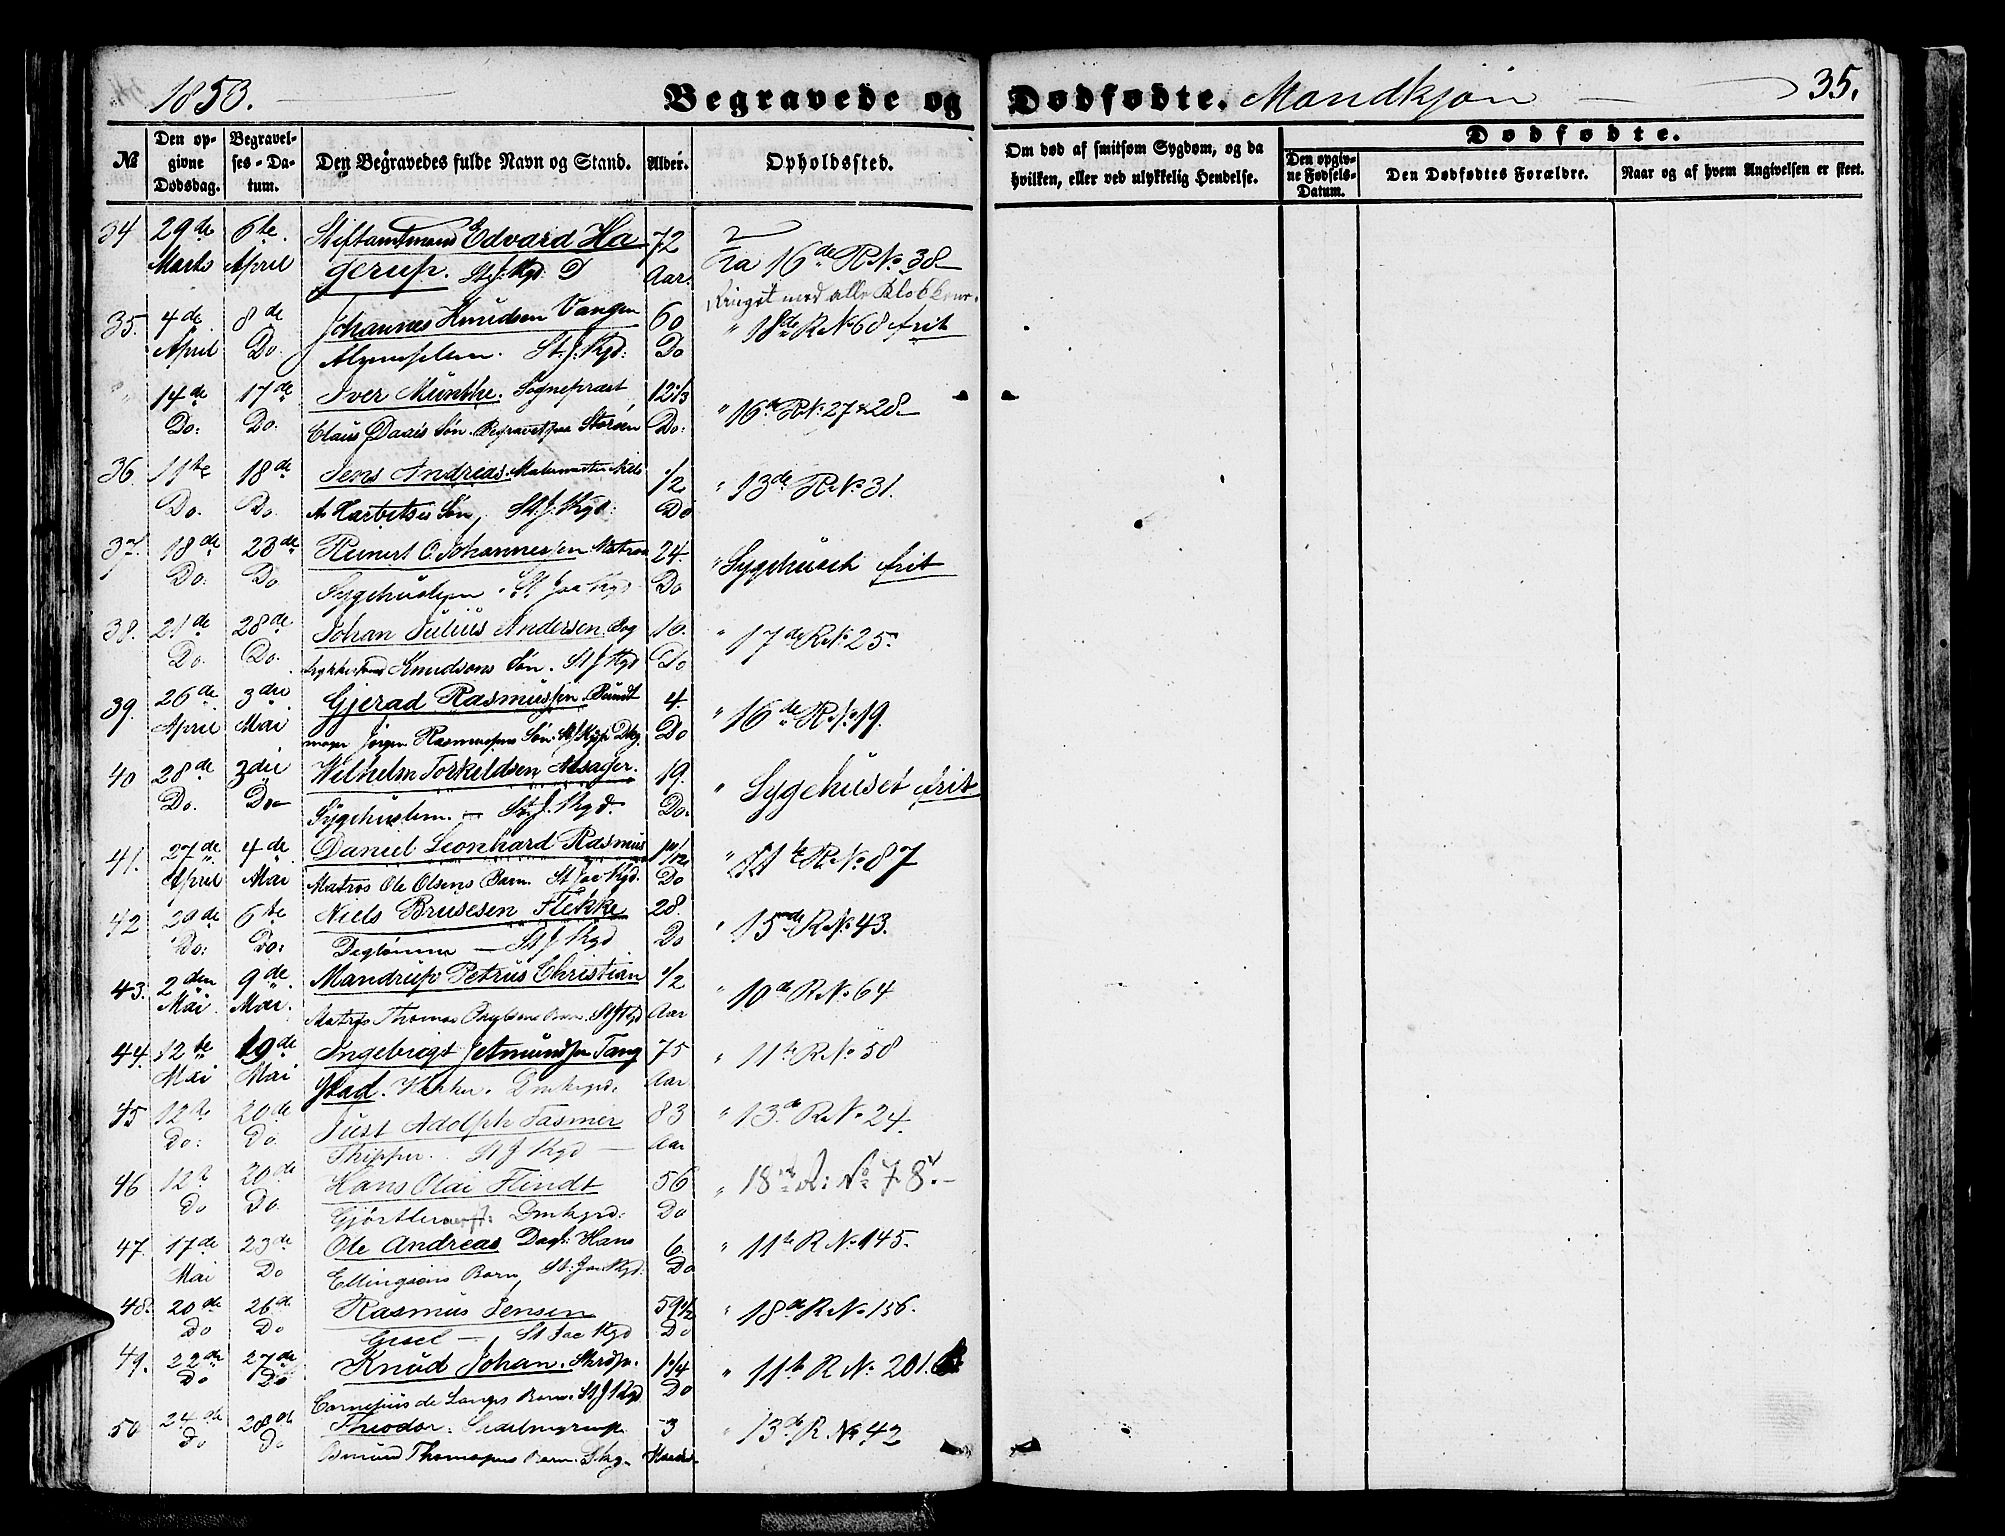 1853. Begravede og Dødfødte. Mandkjøn 35.
№ Den opgivne Dødsdag. Begravelses-Datum. Den Begravedes fulde Navn og Stand. Alder. Opholdssted. Om død af smitsom Sygdom, og da hvilken, eller ved ulykkelig Hendelse. Dødfødte.
Den opgivne Fødsels-Datum. Den Dødfødtes Forældre. Naar og af hvem Angivelsen er skeet.
34 29de 6te Stiftamtmand Edvard Ha 72
Marts April gerup. St J. Kgd: D Aar. Fra 16de R No. 38
Ringet med alle Klokkene.
35. 4de 8de Johannes Knudsen Vangen 60 " 18de R No 68 frit
April Do. Almuslem. St. J. Kgd: Do
" 14de 17de Iver Munthe. Sognepræst 12 1/3 " 16de R No. 27 & 28
Do: Do. Claus Daaes Søn. Begravet paa Storøen Do:
36. 11te 18de Jens Andreas. Malermester Niels 1/2 " 13de R No. 31.
Do. Do. A Harbitses Søn, St. J. Kgd: Do
37. 18de 23de Reinert O. Johannessen Matros 24. " Sygehuset frit
Do. Do Sygehuslem. St Jac Kgd Do
38. 21de 28de Johan Julius Andersen Bog 16. " 17de R No. 25.
Do. Do. trykker Knudsons Søn. St J Kgd Do
39. 26de 3die Gjerad Rasmussen. Bundt 4. " 16de R No. 19.
April Mai mager Jørgen Rasmussens Søn. Do
40 28de 3die Wilhelm Torkeldsen Alsager. 19. " Sygehuset frit
Do. Do Sygehuslem. — St. J. Kgd. Do.
41. 27de 4de Daniel Leonhard Rasmus 1 10/12 " R No 87
April Mai Matros Ole Olsens Barn. St Jac Kgd. Do
42 29de 6te Niels Brusesen Flekke 28. " 15de R No. 43.
Do: Do: Degtømmer — St J Kgd Do
43. 2den 9de Mandrup Petrus Christian 1/2 " 10de R No. 64
Mai Mai. Matros Thomas Barn. St J Kgd Aar
44. 12te 19de Ingebrigt Tang 75 " 11te R No 58
Mai Mai Stad. Vægter. Dmkgrd. Aar
45 12te 20de Just Adolph Fasmer 83 " 13de R No. 24.
Do: Do. Skipper. St J Kgd — Aar
46 12t 20de Hans Olai Flindt 56 " 18de R: No 78.
Do Do. Gjørtler. Dmkgrd: Do
47. 17de 23de Ole Andreas Dagl: Hans 6. " 11te R No. 145.
Mai Do Ellingsøns Barn, St: Jac Kgd: Do
48. 20de 26de Rasmus Jensen 59 1/2 " 18de R No. 156.
Do Do — St Jac Kgd Do
49. 22de 27de Knud Johan. Skrdp. 1 1/4 " 11te R No. 201.
Do Do Cornelius de Langes Barn. St J Kgd Do
50 24de 28de Theodor. 3 " 13de R. No 42
Do Do Osmund Thomassens Barn.